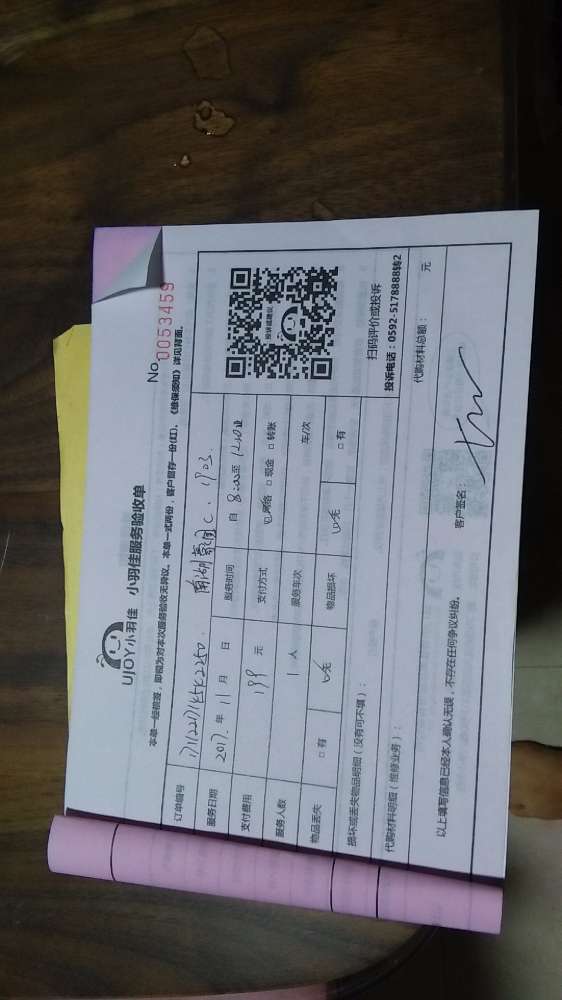 UJOY小羽佳 小羽佳服务验收单
No. 0053459
本单一经核签，即视为对本次服务验收无异议。本单一式两份，客户留存一份(红)，《维保须知》详见背面。
订单编号 171122714542250. 南湖豪园C.1903
服务日期 2017年 11月 日 服务时间 自 8:00至 12:00止
支付费用 199 元 支付方式 ☑网络 □现金 □转账
服务人数 1 人 服务车次 车/次
物品丢失 □有 ☑无 物品损坏 ☑无 □有
投诉或建议
扫码评价或投诉
投诉电话：0592-5178888转2
损坏或丢失物品明细（没有可不填）：
代购材料明细（维修业务）： 代购材料总额： 元
以上填写信息已经本人确认无误，不存在任何争议纠纷。 客户签名：